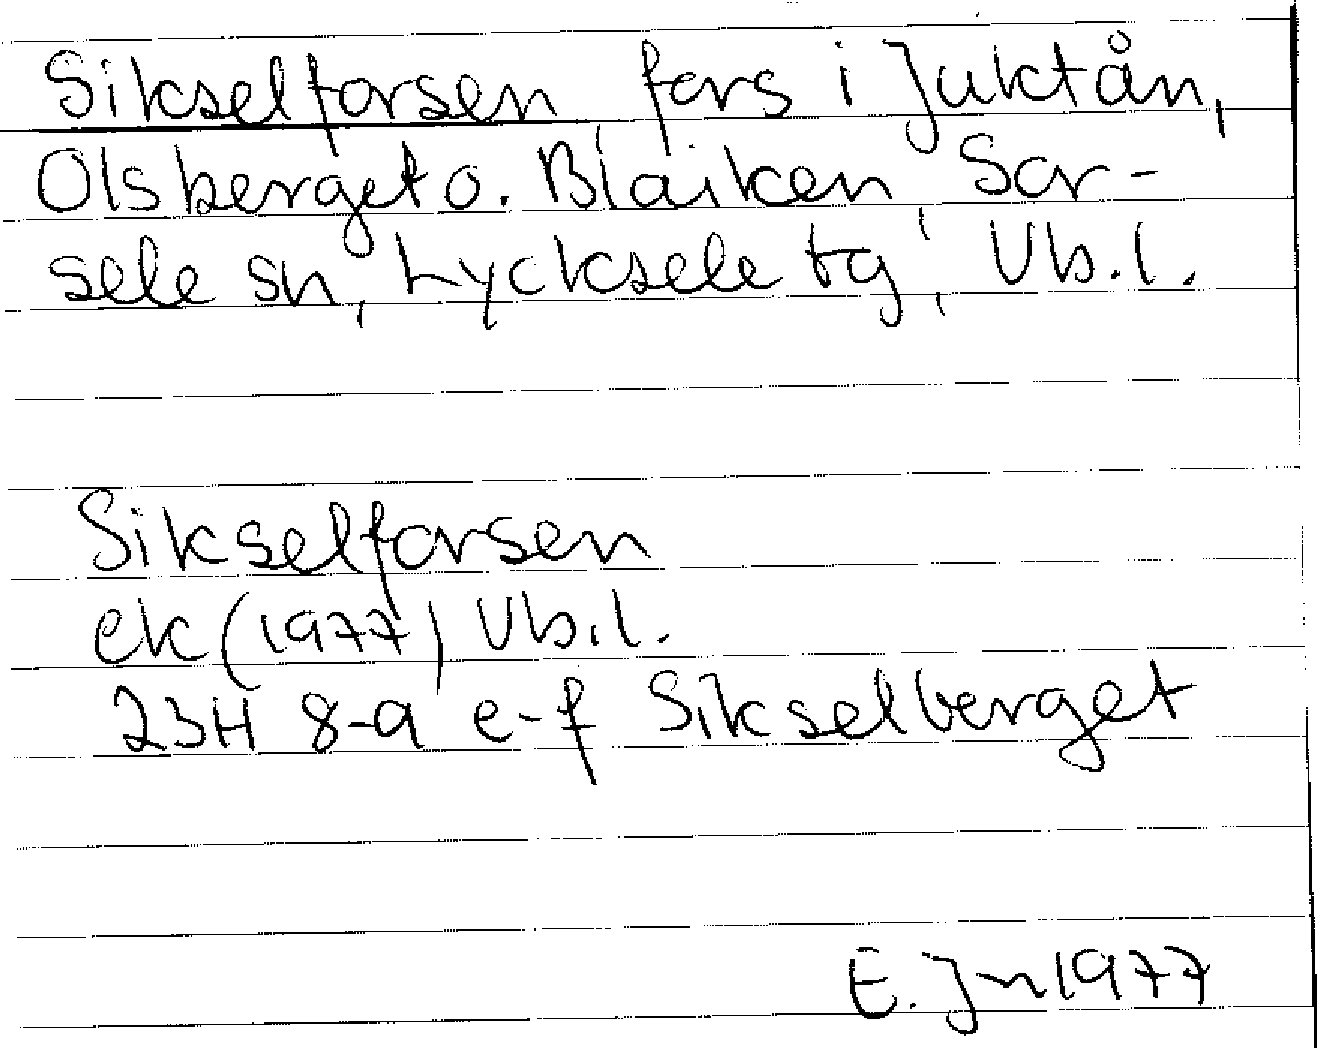 Sikselforsen fors i Juktån,
Olsberget o. Blaiken, Sor-
sele sn, Lycksele tg, Vb.l.
Sikselforsen
ek (1977) Vb.l.
23H 8-9 e-f Sikselberget
E. Jn 1977